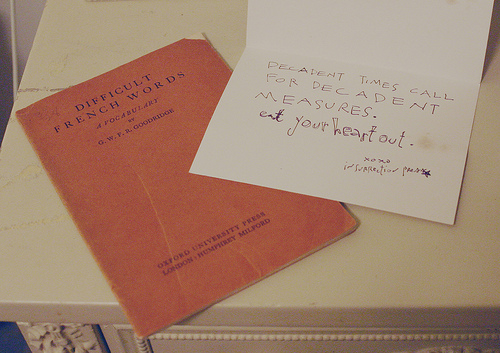 DIFFICULT
FRENCH WORDS
A VOCABULARY
BY
G. W. F. R. GOODRIDGE
OXFORD UNIVERSITY PRESS
LONDON · HUMPHREY MILFORD
DECADENT TIMES CALL
FOR DECADENT
MEASURES.
eat your heart out.
xoxo
insurrection press